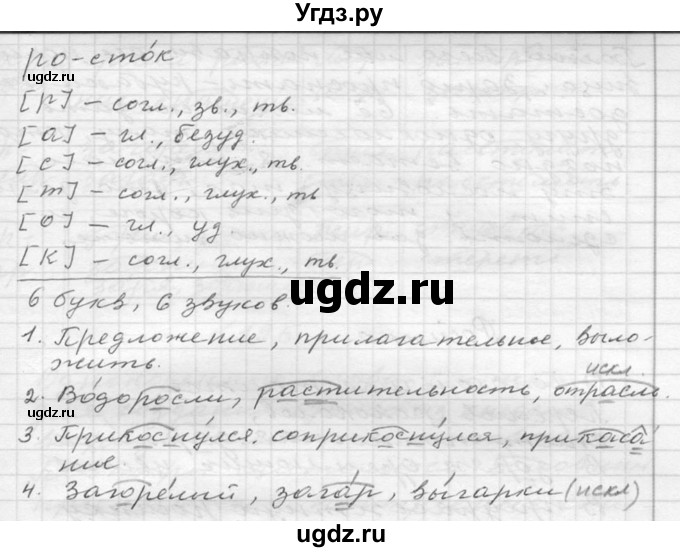 Угдз.ру
ро-сто́к
ugdz.ru
[р] – согл., зв., тв.
[а] – гл., безуд.
[с] – согл., глух., тв.
[т] – согл., глух., тв
[о] – гл., уд.
[к] – согл., глух., тв.
6 букв, 6 звуков.
Угдз.ру
1. Предложение, прилагательное, выло-
жить.
искл.
2. Во́доросли, растительность, отрасль.
ugdz.ru
3. Прикосну́лся, соприкосну́лся, прикаса́
ние.
4. Загоре́лый, зага́р, вы́гарки (искл)
ugdz.ru
Угдз.ру